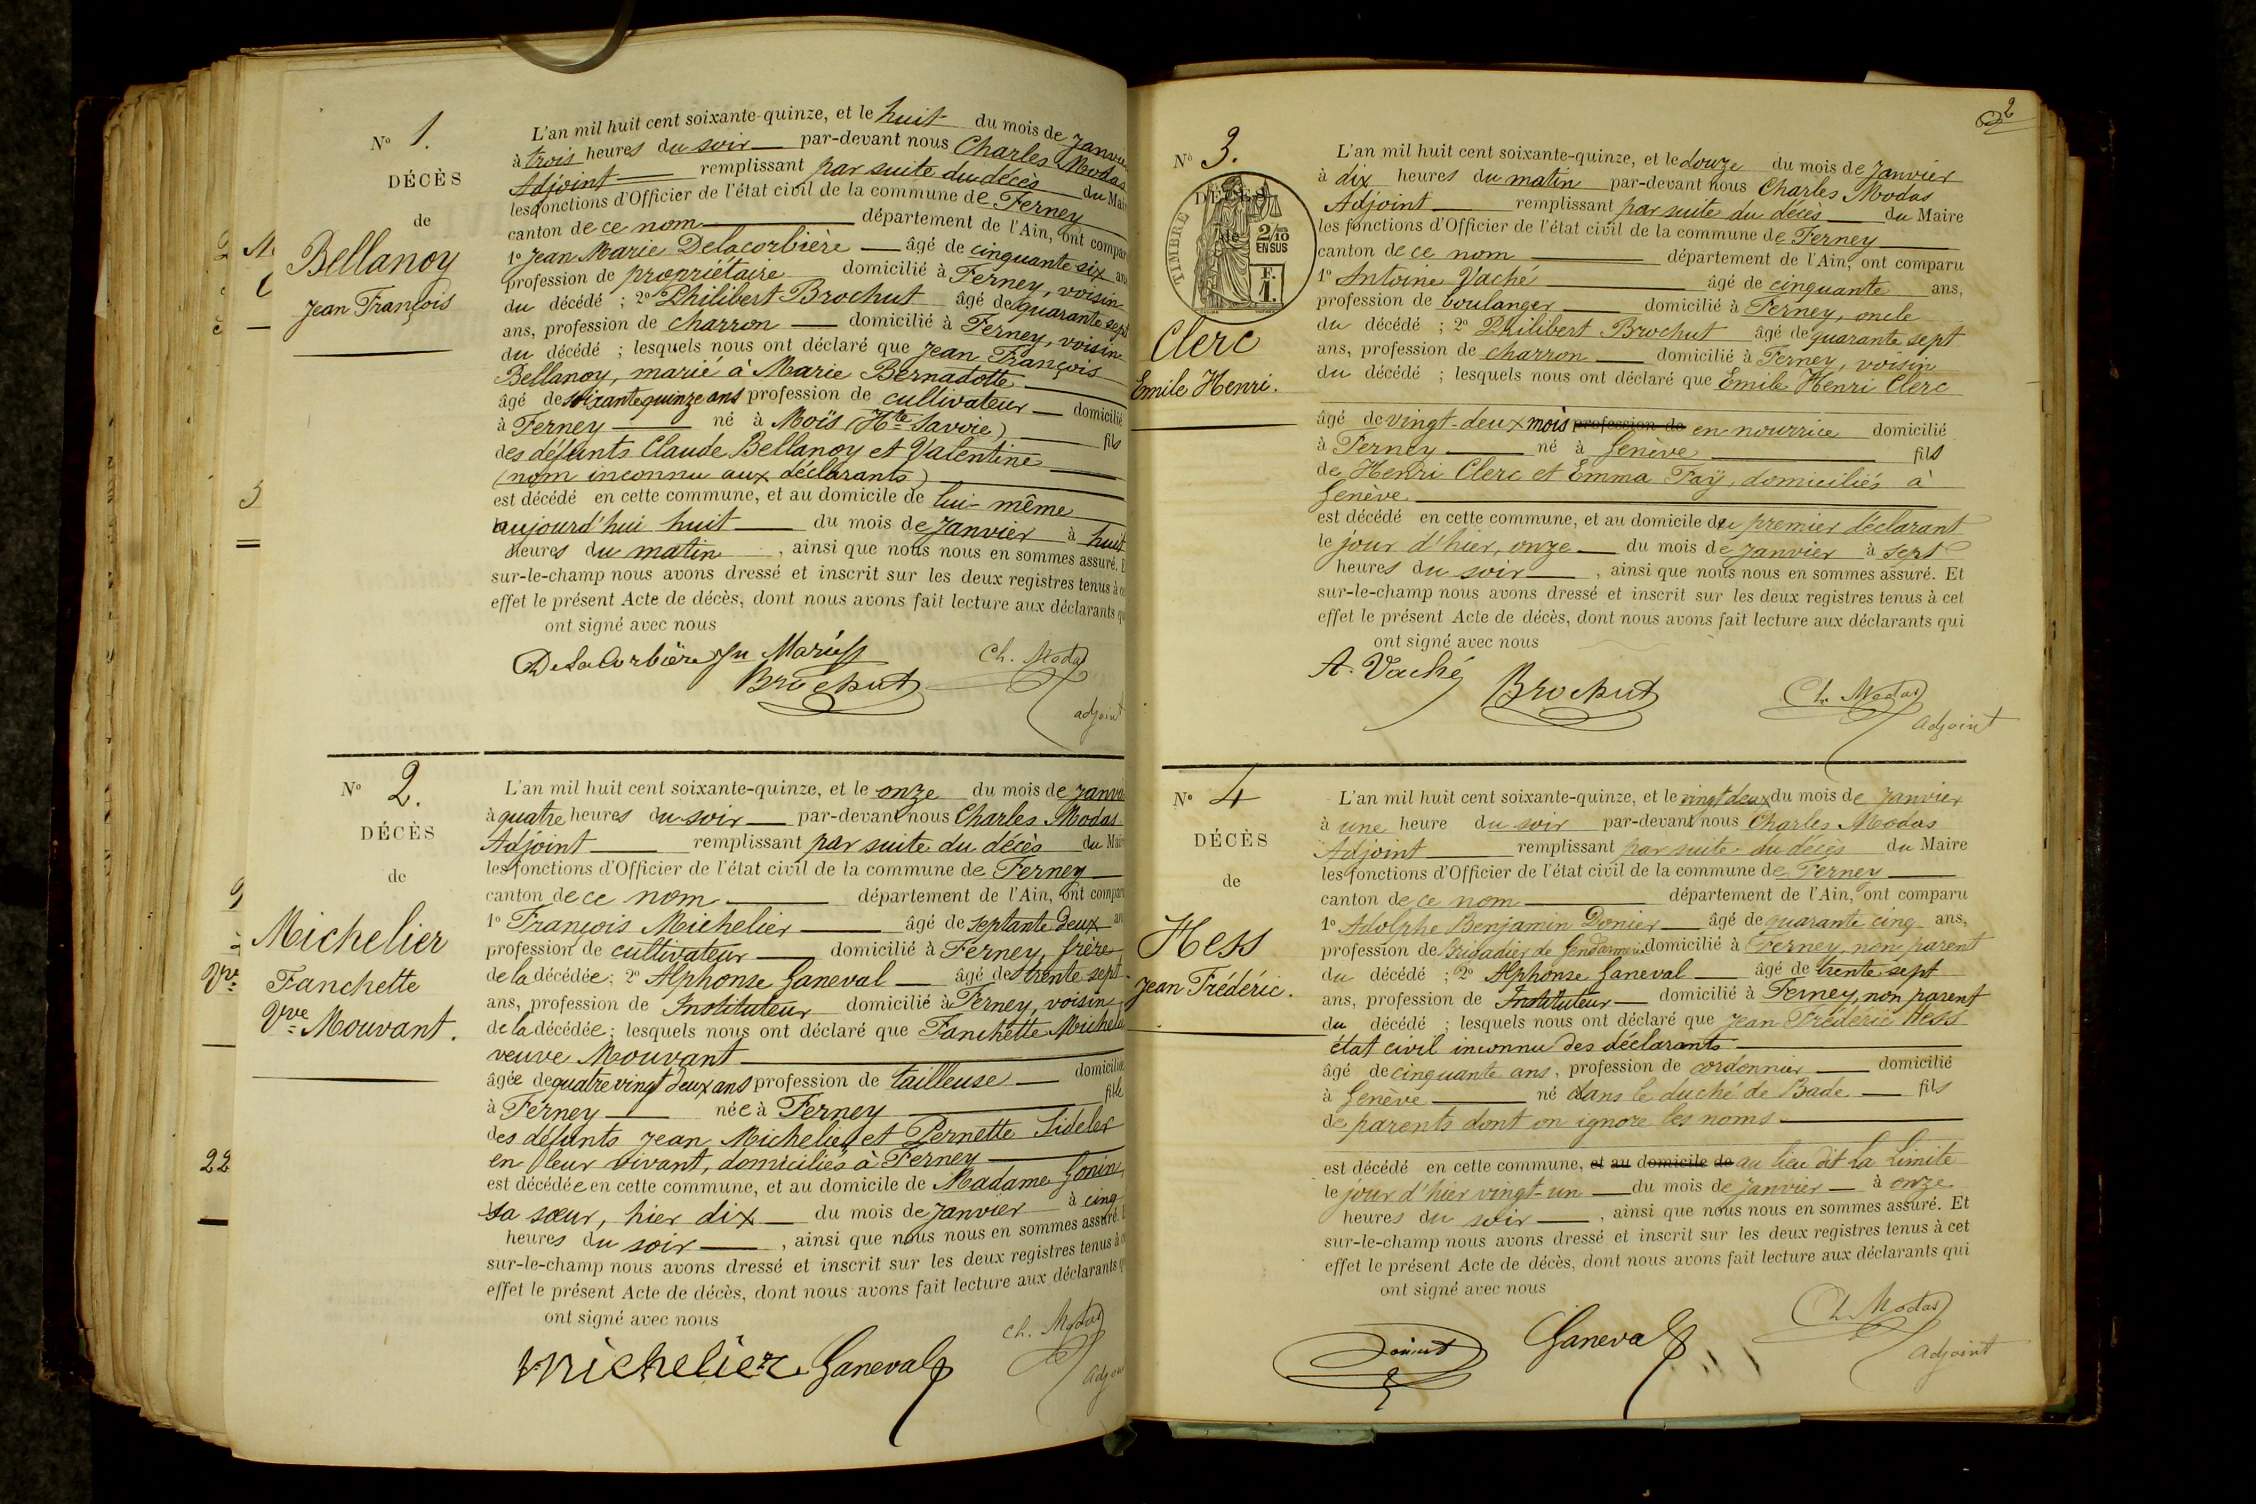 N° 1.
DÉCÈS
de
Bellanoy
Jean François
L'an mil huit cent soixante-quinze, et le huit du mois de Janvier
à trois heures du soir par-devant nous Charles Modas
Adjoint remplissant par suite du décès du Maire
les fonctions d'Officier de l'état civil de la commune de Ferney
canton de ce nom département de l'Ain, ont comparu
1° Jean Marie Delacorbière âgé de cinquante six ans
profession de propriétaire domicilié à Ferney, voisin
du décédé ; 2° Philibert Brochut âgé de quarante sept
ans, profession de charron domicilié à Ferney, voisin
du décédé ; lesquels nous ont déclaré que Jean François
Bellanoy, marié à Marie Bernadotte
âgé de soixante quinze ans profession de cultivateur domicilié
à Ferney né à Moïs (Hte Savoie) fils
des défunts Claude Bellanoy et Valentine
(nom inconnu aux déclarants)
est décédé en cette commune, et au domicile de lui-même
aujourd'hui huit du mois de Janvier à huit
heures du matin, ainsi que nous nous en sommes assuré. E
sur-le-champ nous avons dressé et inscrit sur les deux registres tenus à ce
effet le présent Acte de décès, dont nous avons fait lecture aux déclarants qu
ont signé avec nous
DelaCorbière Jn Marie
Brochut
Ch. Modas
adjoint
N° 2.
DÉCÈS
de
Michelier
Fanchette
Vve Mouvant.
L'an mil huit cent soixante-quinze, et le onze du mois de Janvi
à quatre heures du soir par-devant nous Charles Modas
Adjoint remplissant par suite du décès du Mair
les fonctions d'Officier de l'état civil de la commune de Ferney
canton de ce nom département de l'Ain, ont comparu
1° François Michelier âgé de septante deux an
profession de cultivateur domicilié à Ferney, frère
de la décédée ; 2° Alphonse Ganeval âgé de trente sept
ans, profession de Instituteur domicilié à Ferney, voisin
de la décédée ; lesquels nous ont déclaré que Fanchette Michelie
veuve Mouvant
âgée de quatre vingt deux ans profession de tailleuse domiciliée
à Ferney née à Ferney fille
des défunts Jean Michelier et Pernette Sideler
en leur vivant, domiciliés à Ferney
est décédée en cette commune, et au domicile de Madame Gonin,
sa sœur, hier dix du mois de Janvier à cinq
heures du soir, ainsi que nous nous en sommes assuré. E
sur-le-champ nous avons dressé et inscrit sur les deux registres tenus à ce
effet le présent Acte de décès, dont nous avons fait lecture aux déclarants qu
ont signé avec nous
Michelier Ganeval
Ch. Modas
adjoin
2
N° 3.
DÉCÈS
de
TIMBRE
2/10
EN SUS
F.
1.
Clerc
Emile Henri.
L'an mil huit cent soixante-quinze, et le douze du mois de Janvier
à dix heures du matin par-devant nous Charles Modas
Adjoint remplissant par suite du décès du Maire
les fonctions d'Officier de l'état civil de la commune de Ferney
canton de ce nom département de l'Ain, ont comparu
1° Antoine Vaché âgé de cinquante ans,
profession de boulanger domicilié à Ferney, oncle
du décédé ; 2° Philibert Brochut âgé de quarante sept
ans, profession de charron domicilié à Ferney, voisin
du décédé ; lesquels nous ont déclaré que Emile Henri Clerc
âgé de vingt-deux mois profession de en nourrice domicilié
à Ferney né à Genève fils
de Henri Clerc et Emma Faÿ, domiciliés à
Genève
est décédé en cette commune, et au domicile du premier déclarant
le jour d'hier, onze du mois de Janvier à sept
heures du soir, ainsi que nous nous en sommes assuré. Et
sur-le-champ nous avons dressé et inscrit sur les deux registres tenus à cet
effet le présent Acte de décès, dont nous avons fait lecture aux déclarants qui
ont signé avec nous
A. Vaché
Brochut
Ch. Modas
adjoint
N° 4
DÉCÈS
de
Hess
Jean Frédéric.
L'an mil huit cent soixante-quinze, et le vingt deux du mois de Janvier
à une heure du soir par-devant nous Charles Modas
Adjoint remplissant par suite du décès du Maire
les fonctions d'Officier de l'état civil de la commune de Ferney
canton de ce nom département de l'Ain, ont comparu
1° Adolphe Benjamin Donier âgé de quarante cinq ans,
profession de Brigadier de Gendarmerie domicilié à Ferney, non parent
du décédé ; 2° Alphonse Ganeval âgé de trente sept
ans, profession de Instituteur domicilié à Ferney, non parent
du décédé ; lesquels nous ont déclaré que Jean Frédéric Hess
état civil inconnu des déclarants
âgé de cinquante ans, profession de cordonnier domicilié
à Genève né dans le duché de Bade fils
de parents dont on ignore les noms
est décédé en cette commune, et au domicile de au lieu dit La Limite
le jour d'hier vingt-un du mois de Janvier à onze
heures du soir, ainsi que nous nous en sommes assuré. Et
sur-le-champ nous avons dressé et inscrit sur les deux registres tenus à cet
effet le présent Acte de décès, dont nous avons fait lecture aux déclarants qui
ont signé avec nous
Ganeval
Ch. Modas
adjoint